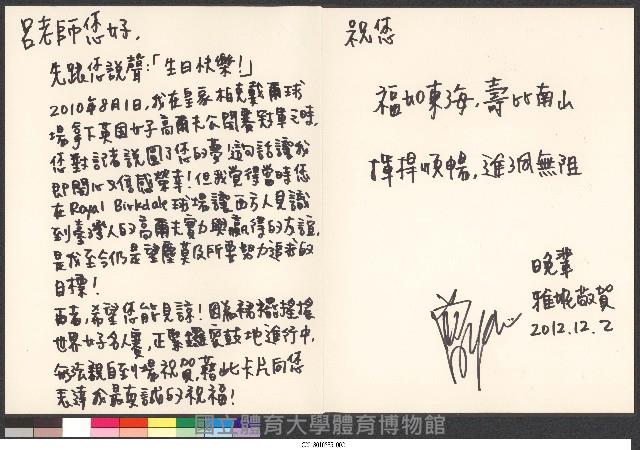 呂老師您好,
先跟您說聲:「生日快樂!」
2010年8月1日,我在皇家柏克戴爾球
場拿下英國女子高爾夫公開賽冠軍之時,
您對記者說圓了您的夢!這句話讓我
即開心又倍感榮幸!但我覺得當時您
在Royal Birkdale球場讓西方人見識
到臺灣人的高爾夫實力與贏得的友誼,
是我至今仍是望塵莫及所要努力追求的
目標!
再者,希望您能見諒!因為裙襬搖搖
世界女子名人賽,正緊鑼密鼓地進行中,
無法親自到場祝賀,藉此卡片向您
表達我最真誠的祝福!
祝您
福如東海,壽比南山
揮桿順暢,進洞無阻
晚輩
雅妮敬賀
2012.12.2
國立體育大學體育博物館